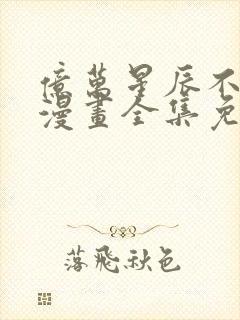 億萬星辰不
漫畫全集免
落飛秋色